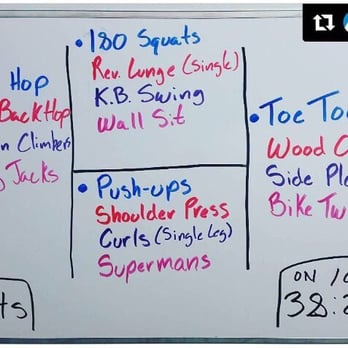 Hop
Back Hop
Climbers
Jacks
• 180 Squats
Rev. Lunge (Single)
K.B. Swing
Wall Sit
• Push-ups
Shoulder Press
Curls (Single Leg)
Supermans
• Toe
Wood
Side
Bike
ON
38: